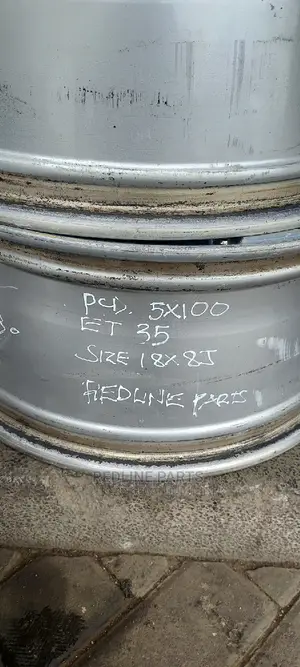 PCD. 5X100
ET 35
SIZE 18X8J
REDLINE PARTS
REDLINE PARTS